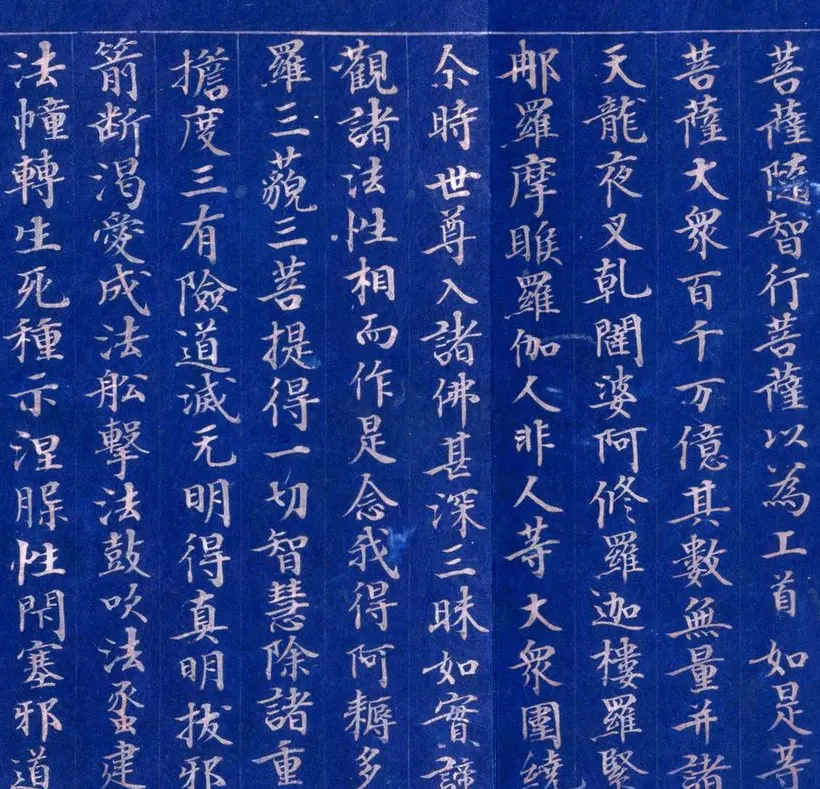 菩薩隨智行菩薩以為上首如是等
菩薩大衆百千万億其數無量并諸
天龍夜叉乹闥婆阿修羅迦樓羅緊
那羅摩睺羅伽人非人等大衆圍繞
尒時世尊入諸佛甚深三昧如實諦
觀諸法性相而作是念我得阿耨多
羅三藐三菩提得一切智慧除諸重
擔度三有險道滅无明得真明拔邪
箭断渴愛成法舩擊法鼓吹法蠡建
法幢轉生死種示涅脲性閇塞邪道